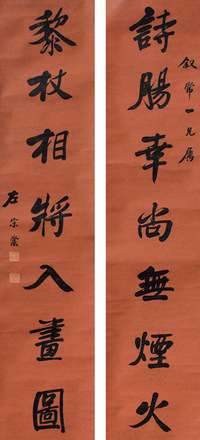 叙常一兄屬
詩腸幸尚無煙火
黎杖相將入畫圖
左宗棠